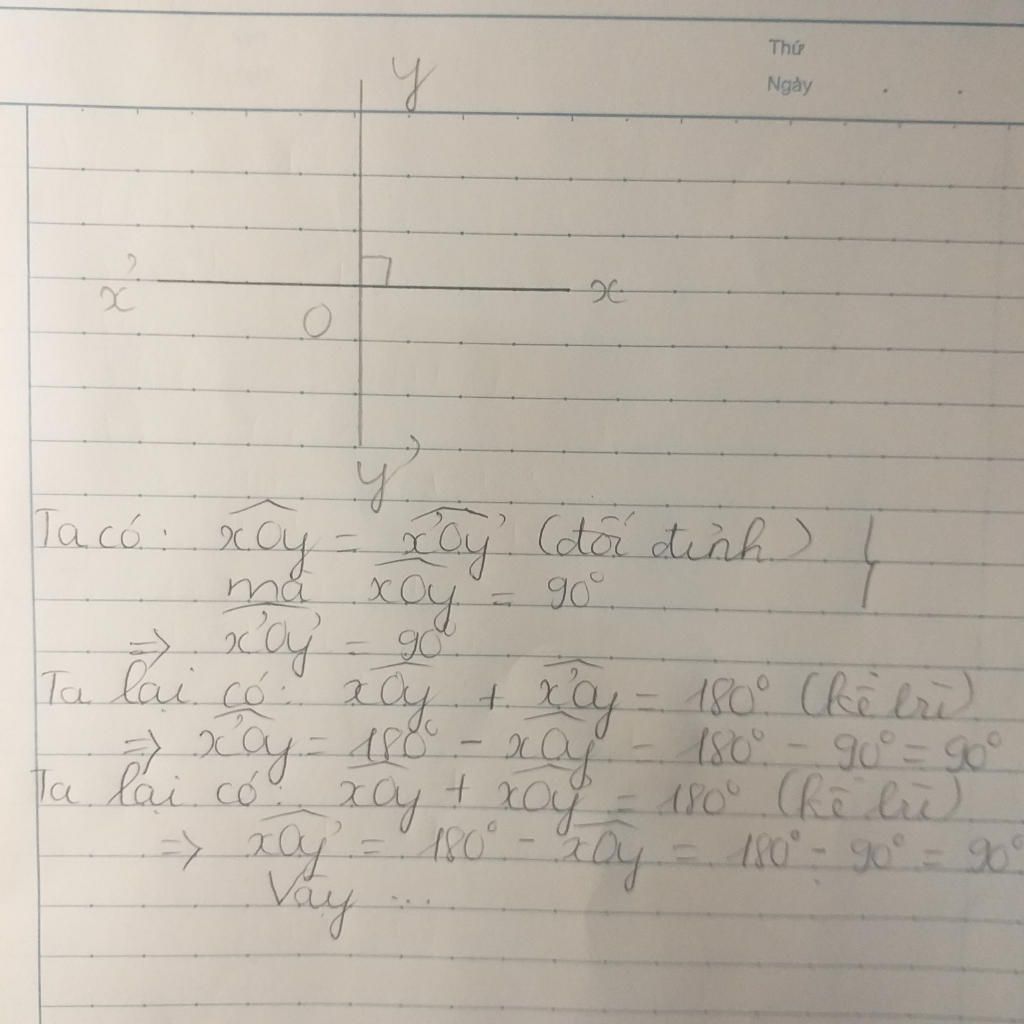 Thứ
Ngày
y
x' x
O
y'
Ta có: xOy = x'Oy' (đối đỉnh)
mà xOy = 90°
=> x'Oy' = 90°
Ta lại có: xOy + x'Oy = 180° (kề bù)
=> x'Oy = 180° - xOy = 180° - 90° = 90°
Ta lại có: xOy + xOy' = 180° (kề bù)
=> xOy' = 180° - xOy = 180° - 90° = 90°
Vậy ...